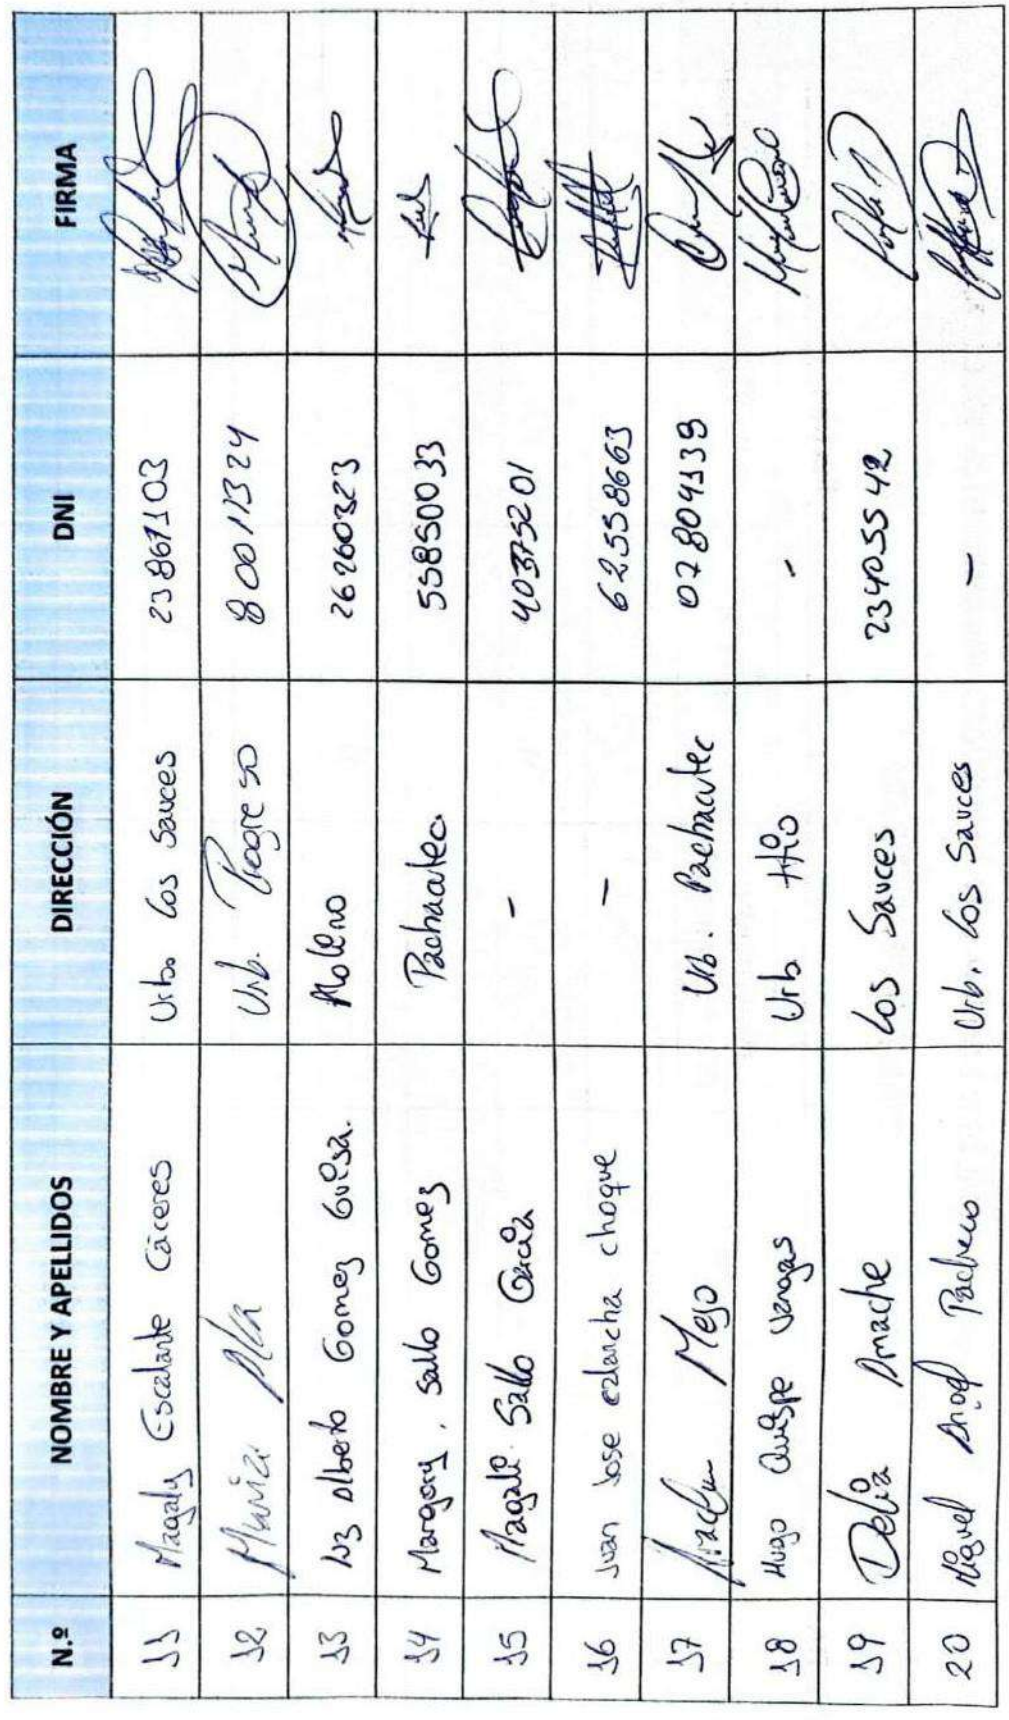 N.º NOMBRE Y APELLIDOS DIRECCIÓN DNI FIRMA
11 Magaly Escalante Cáceres Urb. Los Sauces 23867103
12 Urb. Progreso 80011324
13 Luz Alberto Gomez Molino 26260323
14 Margory. Sallo Gomez Pachacutec 55850033
15 Magali Sallo Garcia - 40375201
16 Juan Jose ccancha choque - 62558663
17 Mejo Urb. Pachacutec 07804139
18 Hugo Quispe Vargas Urb ttio -
19 Delia Amache Los Sauces 23405542
20 Miguel Angel Pacheco Urb. Los Sauces -